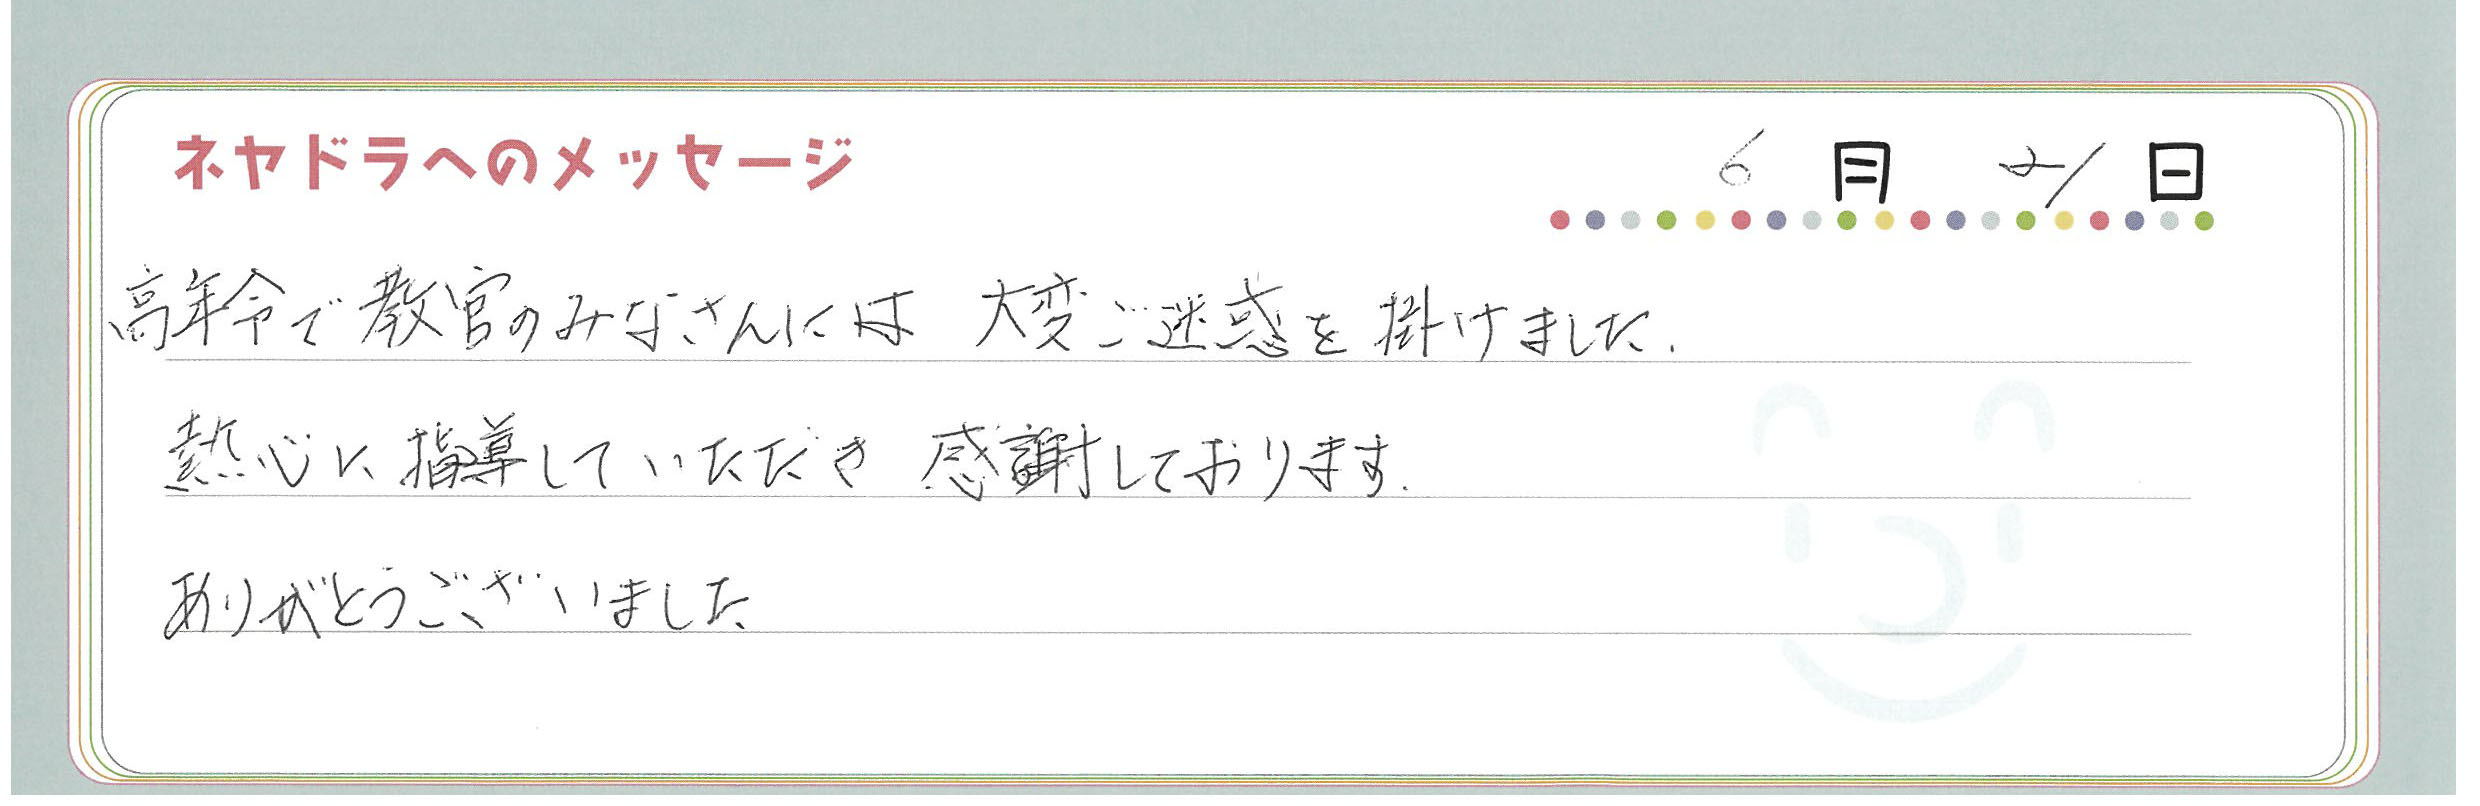 ネヤドラへのメッセージ
6月 21日
高年令で教官のみなさんには 大変ご迷惑を掛けました.
熱心に指導していただき 感謝しております.
ありがとうございました